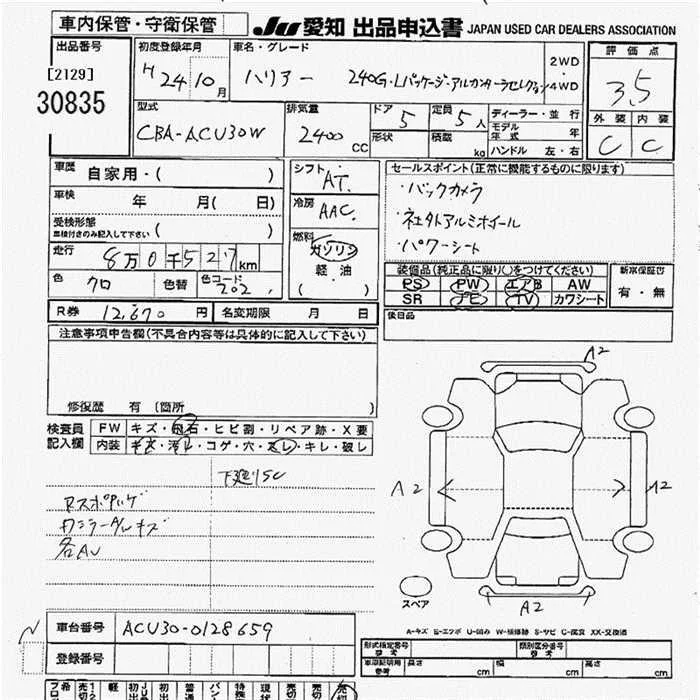 車内保管・守衛保管 JU 愛知 出品申込書 JAPAN USED CAR DEALERS ASSOCIATION
出品番号 初度登録年月 車名・グレード 2WD・4WD 評価点
[2129] H 24年10月 ハリアー 240G・Lパッケージ・アルカンターラセレクション 3.5
30835 外装 内装
C C
型式 CBA-ACU30W 排気量 2400 CC ドア 5 定員 5人 ディーラー・並行
形状 積載 kg モデル年式 年
ハンドル 左・右
車歴 自家用・( ) シフト AT セールスポイント(正常に機能するものに限ります)
車検 年 月(日) 冷房 AAC ・バックカメラ
受検形態 ( ) ・社外アルミホイール
車検付きのみ記入して下さい
走行 8万0千527km 燃料 ガソリン ・パワーシート
軽油
( )
色 クロ 色替 色コード 202
装備品(純正品に限り○をつけてください) 新車保証書
PS PW エアB AW 有・無
SR TV カワシート
R券 12,670円 名変期限 月 日 後日品
注意事項申告欄(不具合内容等は具体的に記入して下さい)
修復歴 有 〔箇所 )
検査員 FW キズ・飛石・ヒビ割・リペア跡・X要
記入欄 内装 キズ・汚レ・コゲ・穴・スレ・キレ・破レ
各AU
A2
A2 A2
A2
スペア
A-キズ E-エクボ U-凹み W-補修跡 S-サビ C-腐食 XX-交換済
車台番号 ACU30-0128659
登録番号
型式指定番号 類別区分番号
参考 参考
車庫証明用参考 長さ cm 幅 cm 高さ cm